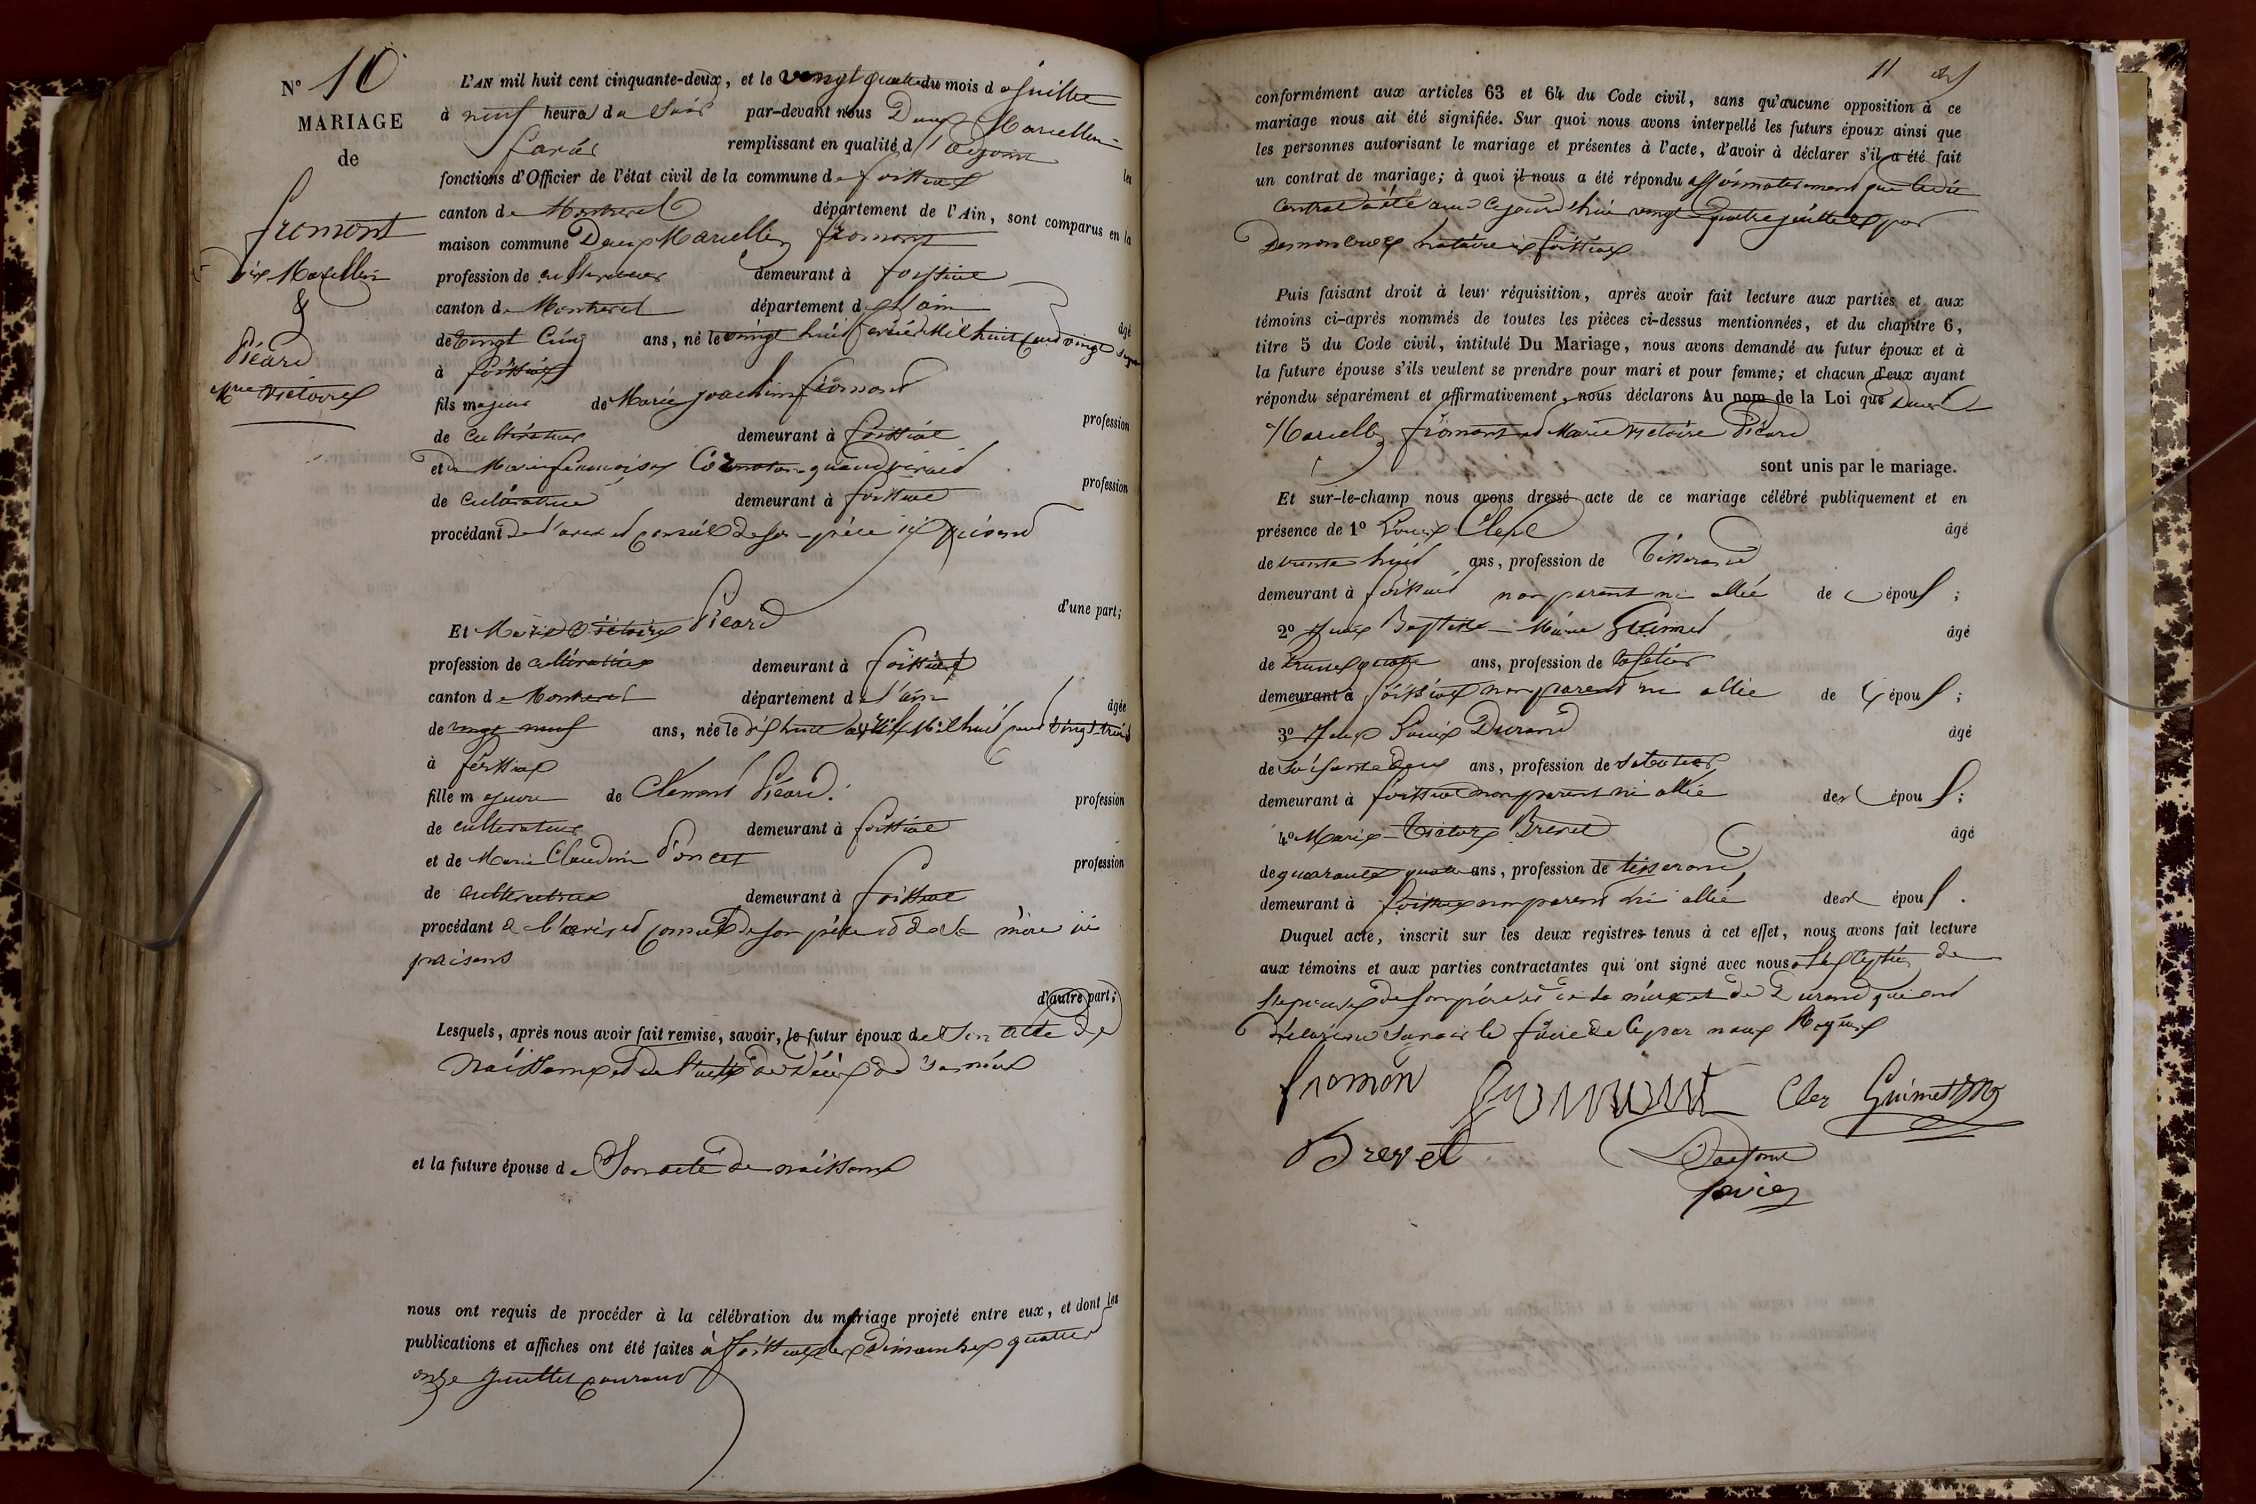 N° 10
MARIAGE
de
Fromont
Marcellin
&
Picard
Mie Victoire
L'AN mil huit cent cinquante-deux, et le vingt quatre du mois de juillet
à neuf heures du soir par-devant nous Marcellin
remplissant en qualité d'adjoint les
fonctions d'Officier de l'état civil de la commune de foissiat
canton de Montrevel département de l'Ain, sont comparus en la
maison commune Marcellin fromont
profession de cultivateur demeurant à foissiat
canton de Montrevel département de l'ain âgé
de vingt cinq ans, né le vingt huit mil huit cent vingt
à foissiat
fils majeur de Marie joachim fromont profession
de cultivateur demeurant à foissiat
et de Marie françoise profession
de cultivatrice demeurant à foissiat
procédant de l'avis et conseil de son père ici présent
d'une part;
Et Marie Victoire Picard
profession de cultivatrice demeurant à foissiat
canton de Montrevel département de l'ain âgée
de vingt neuf ans, née le mil huit cent vingt trois
à foissiat
fille majeure de Clement Picard profession
de cultivateur demeurant à foissiat
et de Marie Claudine Poncet profession
de cultivatrice demeurant à foissiat
procédant de l'avis et conseil de son père et de sa mère ici
présents
d'autre part;
Lesquels, après nous avoir fait remise, savoir, le futur époux de son acte de
naissance et de l'acte de décès de sa mère
et la future épouse de son acte de naissance
nous ont requis de procéder à la célébration du mariage projeté entre eux, et dont les
publications et affiches ont été faites à foissiat les dimanches quatre
onze juillet courant
11
conformément aux articles 63 et 64 du Code civil, sans qu'aucune opposition à ce
mariage nous ait été signifiée. Sur quoi nous avons interpellé les futurs époux ainsi que
les personnes autorisant le mariage et présentes à l'acte, d'avoir à déclarer s'il a été fait
un contrat de mariage; à quoi il nous a été répondu affirmativement que ledit
contrat a été ce jourd'hui vingt quatre juillet par
notaire à foissiat
Puis faisant droit à leur réquisition, après avoir fait lecture aux parties et aux
témoins ci-après nommés de toutes les pièces ci-dessus mentionnées, et du chapitre 6,
titre 5 du Code civil, intitulé Du Mariage, nous avons demandé au futur époux et à
la future épouse s'ils veulent se prendre pour mari et pour femme; et chacun d'eux ayant
répondu séparément et affirmativement, nous déclarons Au nom de la Loi que
Marcellin fromont et Marie Victoire Picard
sont unis par le mariage.
Et sur-le-champ nous avons dressé acte de ce mariage célébré publiquement et en
présence de 1° Louis Clerc âgé
de trente huit ans, profession de Tisserand
demeurant à foissiat non parent ni allié de épous ;
2° Jean Baptiste Marie Guimet âgé
de ans, profession de cafetier
demeurant à foissiat non parent ni allié de épous ;
3° Jean Louis Durand âgé
de soixante deux ans, profession de
demeurant à foissiat non parent ni allié des épous ;
4° Marie Victor Brevet âgé
de quarante quatre ans, profession de tisserand
demeurant à foissiat non parent ni allié des épous .
Duquel acte, inscrit sur les deux registres tenus à cet effet, nous avons fait lecture
aux témoins et aux parties contractantes qui ont signé avec nous à l'exception de
l'épouse de son père et de sa mère et de Durand qui ont
déclaré ne savoir le faire de ce par nous requis
fromon fromont Clerc Guimet
Brevet